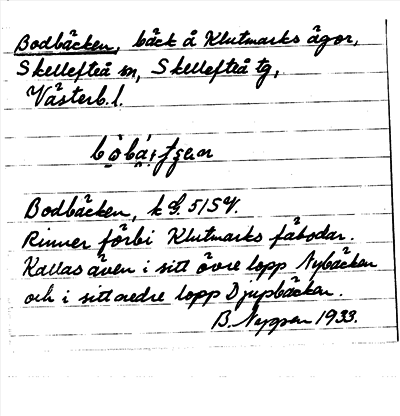 Bodbäcken, bäck å Klutmarks ägor,
Skellefteå sn, Skellefteå tg,
Västerb. l.
Bodbäcken, k
Rinner förbi Klutmarks fäbodar.
Kallas även i sitt övre lopp Nybäcken
och i sitt nedre lopp Djupbäcken.
B. 1933.